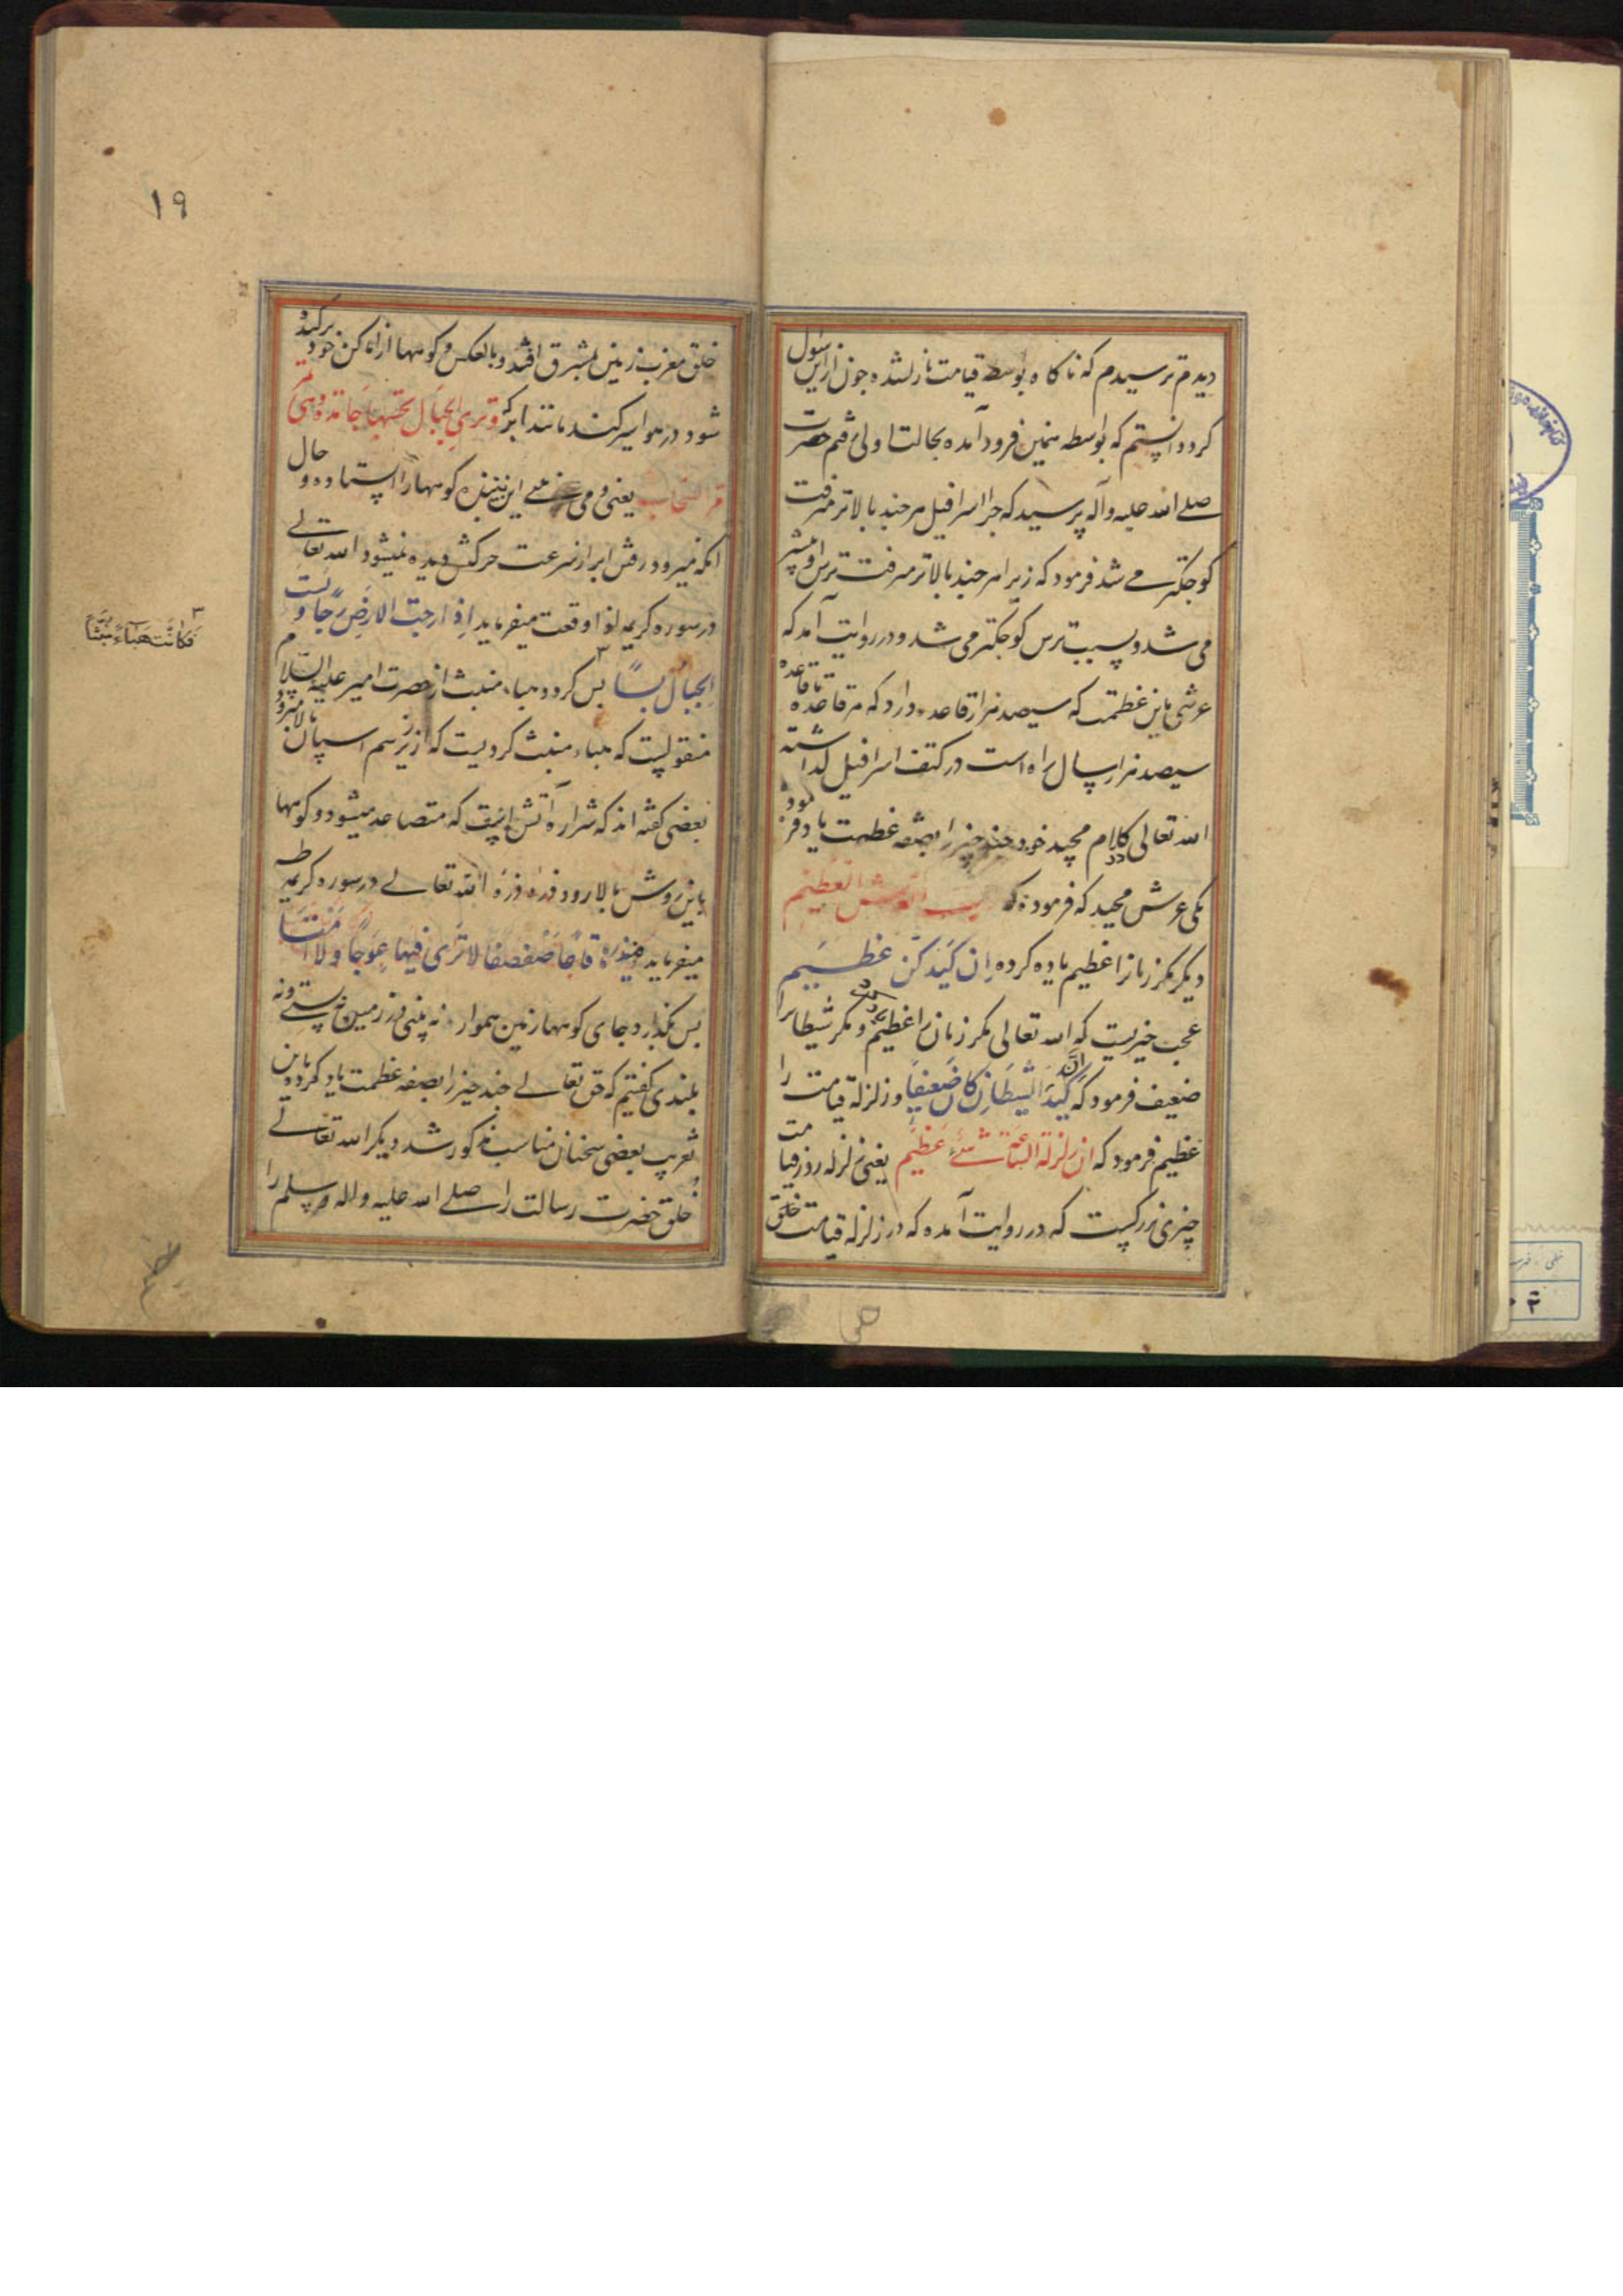 دیدم ترسیدم که ناکاه بواسطه قیامت نازلشده چون از این رسول
کرد دانستم که بواسطه همین فرود آمده بحالت اولی رفتم حضرت
صلی الله علیه وآله پرسید که چرا اسرافیل هرچند بالاتر میرفت
کوچکتر می شد فرمود که زیرا هرچند بالاتر میرفت ترس او بیشتر
می شد و بسبب ترس کوچکتر می شد و در روایت آمد که
عرشی باین عظمت که سیصد هزار قاعده دارد که هر قاعده تا قاعده
سیصد هزار سال راه است در کتف اسرافیل کذاشته
الله تعالی در کلام مجید خود چند چیز را بصفه عظمت یاد فرموده
یکی عرش مجید که فرموده که رب العرش العظیم
دیکر مکر زنانرا عظیم یاده کرده اِن کَیدَکُنَّ عَظیم
عجب چیزیست که الله تعالی مکر زنان را عظیم و مکر شیطانرا
ضعیف فرمود که اِنَّ کَیدَ الشَیطَانِ کَانَ ضَعیفاً و زلزلة قیامت را
عظیم فرمود که ان زلزلة الساعة شئ عَظیم یعنی زلزله روز قیامت
چیزی بزرکیست که در روایت آمده که در زلزله قیامت خلق
۱۹
خلق مغرب زمین بمشرق افتد و بالعکس و کوهها از اماکن خود برکنده
شود در هوا سیر کنند مانند ابر وَتَرَی الجِبَال تحسَبهَا جَامدَة وَهِیَ تمر
مَرّ السَّحَاب یعنی و می بینی این بیننده کوهها را ایستاده و حال
انکه میرود رفتن ابر از سرعت حرکتش دیده نمیشود الله تعالی
در سوره کریمه اذا وقعت میفرماید اِذا رجت الارض رجا و بست
الجِبَالُ بَسًّا پس کردد هباء منبث از حضرت امیر علیه السلام
فکانت هَبَاءً منبثا
منقولست که هباء منبث کردیست که از زیر سم اسپان بالا میرود
بعضی کفته اند که شراره آتش است که متصاعد میشود و کوهها
باین روش بالا رود ذره ذره الله تعالی در سوره کریمه طه
میفرماید فیذرها قَاعًا صَفصَفًا لَا تَرَی فیها عِوَجًا وَلا اَمتًا
پس بکذارد جای کوهها زمین هموار نه بینی در زمین پستی و نه
بلندی کفتیم که حق تعالی چند چیز را بصفه عظمت یاد کرده و باین
تقریب بعضی سخنان مناسب مذکور شد دیکر الله تعالی
خلق حضرت رسالت را صلی الله علیه وآله وسلم را